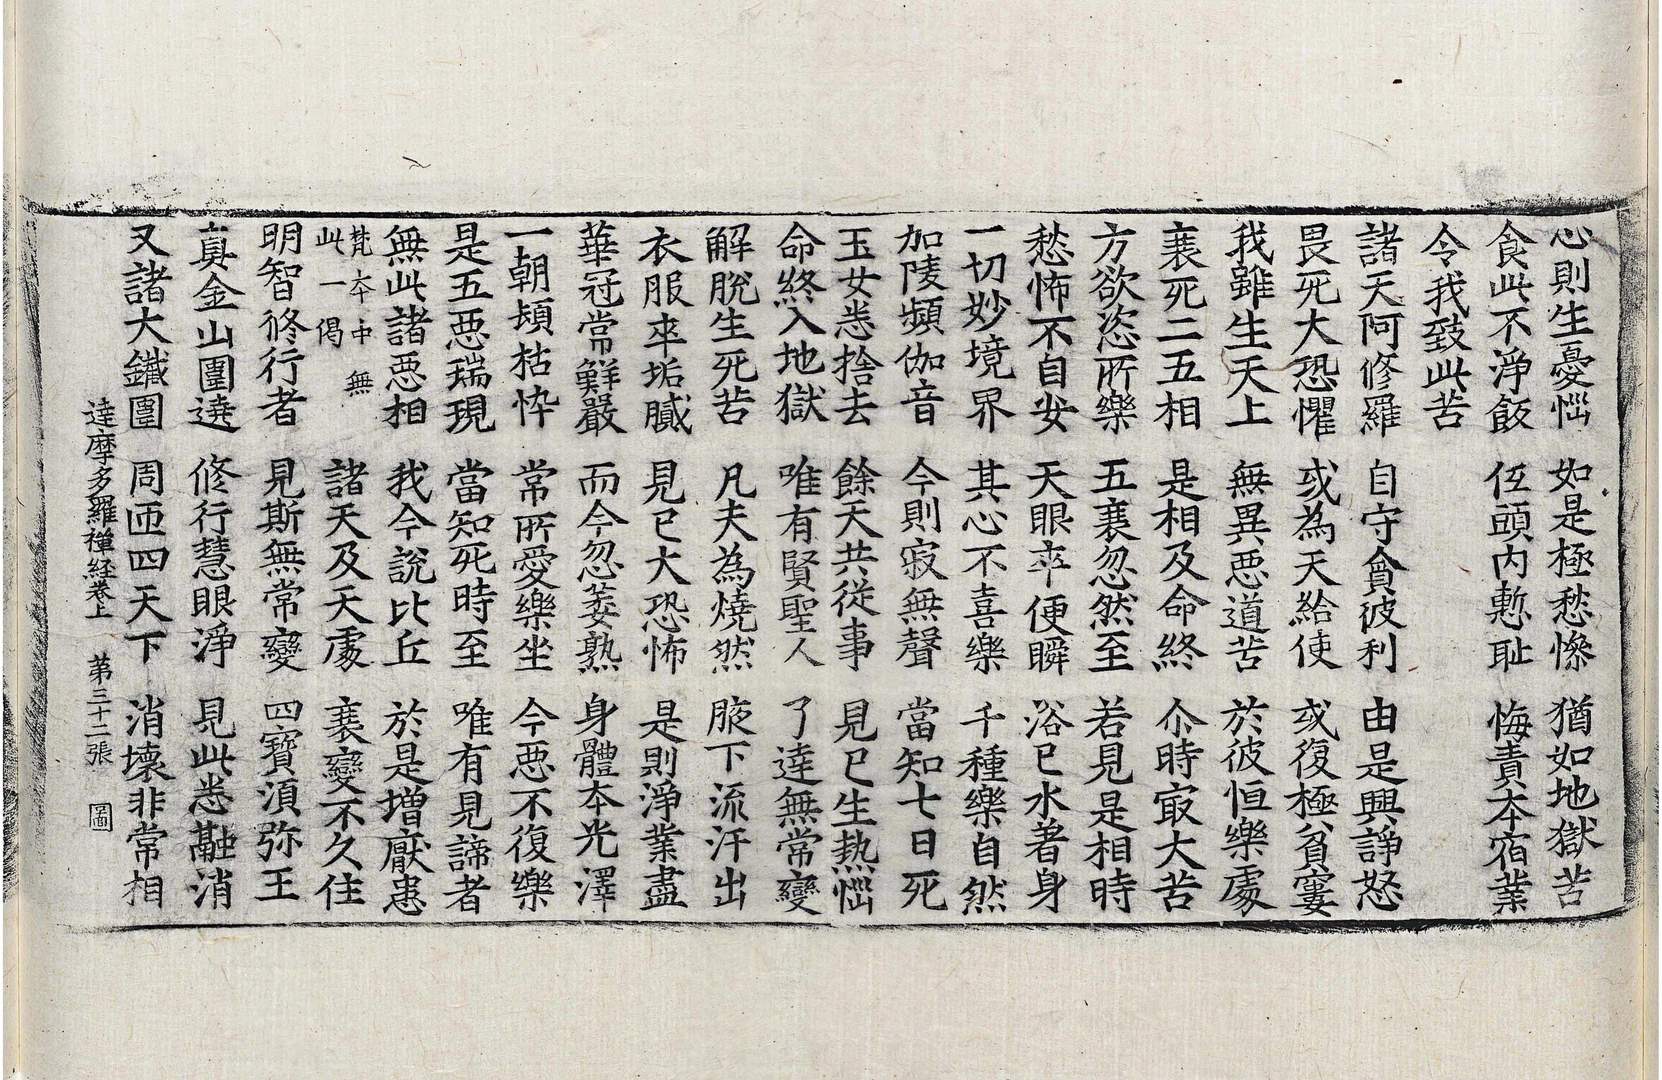 心則生憂惱　如是極愁慘　猶如地獄苦
食此不淨飯　伍頭内慙耻　悔責本宿業
令我致此苦
諸天阿修羅　自守貪彼利　由是興諍怒
畏死大恐懼　或為天給使　或復極貧窶
我雖生天上　無異惡道苦　於彼恒樂處
衰死二五相　是相及命終　尒時㝡大苦
方欲恣所樂　五衰忽然至　若見是相時
愁怖不自安　天眼卒便瞬　浴已水著身
一切妙境界　其心不喜樂　千種樂自然
加陵頻伽音　今則寂無聲　當知七日死
玉女悉捨去　餘天共從事　見已生熱惱
命終入地獄　唯有賢聖人　了達無常變
解脫生死苦　凡夫為燒然　腋下流汗出
衣服卒垢膩　見已大恐怖　是則淨業盡
華冠常鮮嚴　而今忽萎熟　身體本光澤
一朝頓枯悴　常所愛樂坐　今惡不復樂
是五惡瑞現　當知死時至　唯有見諦者
無此諸惡相　我今説比丘　於是增猒患
梵本中無
此一偈　諸天及天處　衰變不久住
明智修行者　見斯無常變　四寶須弥王
真金山圍遶　修行慧眼淨　見此悉融消
又諸大鐵圍　周匝四天下　消壞非常相
達摩多羅禪経卷上　第三十二張　圖